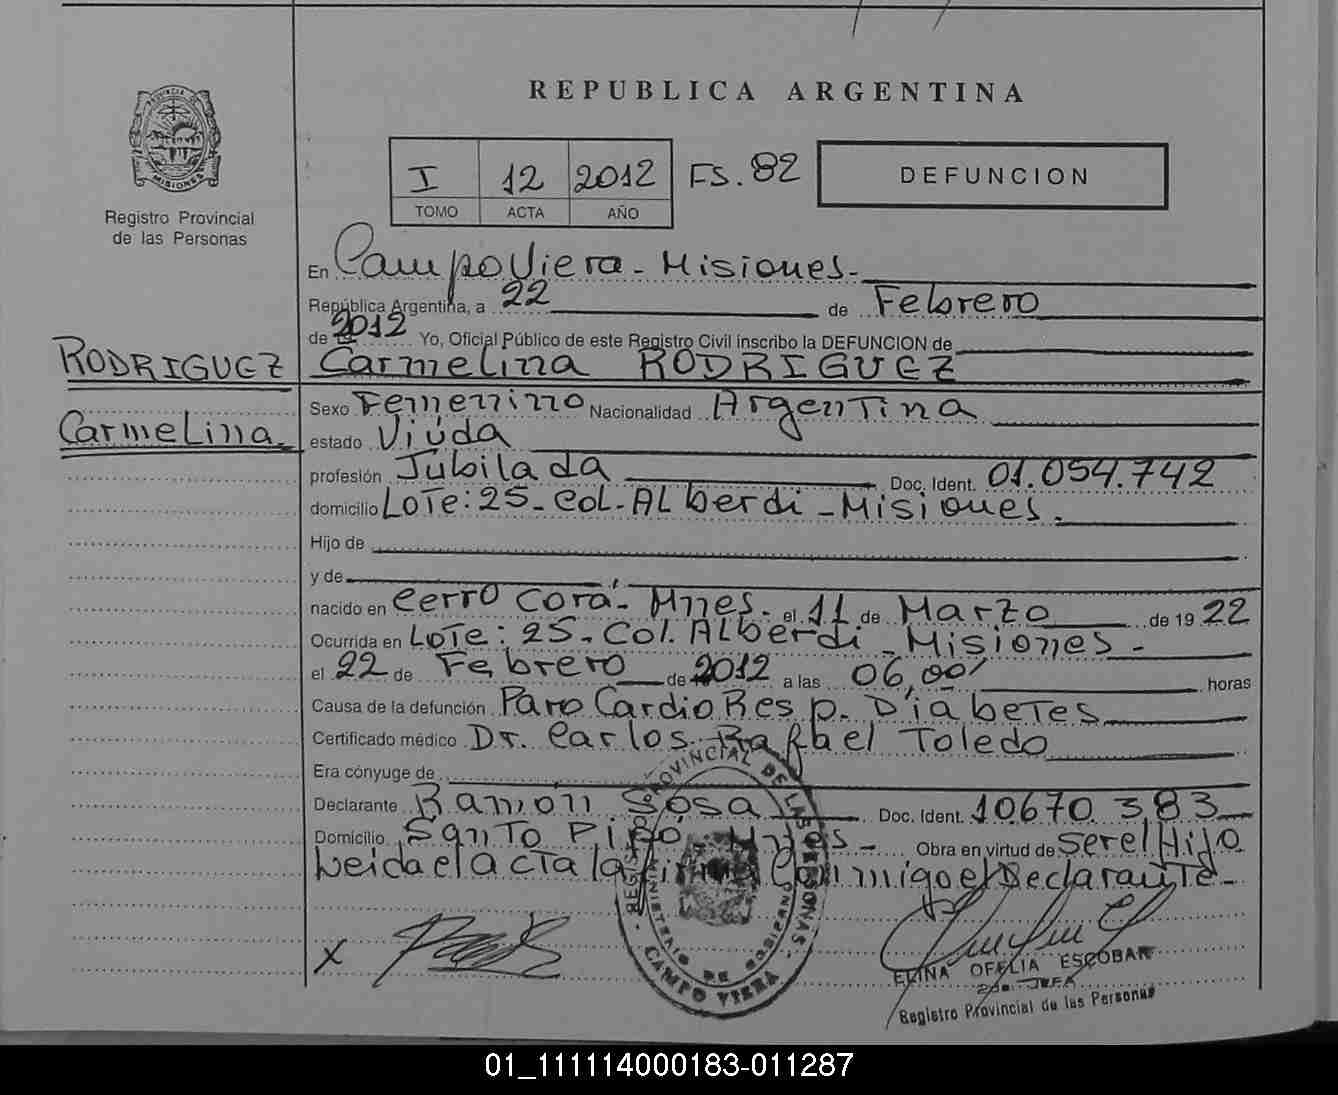 REPUBLICA ARGENTINA
PROVINCIA DE MISIONES
Registro Provincial
de las Personas
I 12 2012 FS. 82
TOMO ACTA AÑO
DEFUNCION
En Campo Viera - Misiones -
República Argentina, a 22 de Febrero
de 2012 Yo, Oficial Público de este Registro Civil inscribo la DEFUNCION de
RODRIGUEZ
Carmelina.
Carmelina RODRIGUEZ
Sexo Femenino Nacionalidad Argentina
estado Viúda
profesión Jubilada Doc. Ident. 01.054.742
domicilio Lote: 25 - Col. Alberdi - Misiones.
Hijo de
y de
nacido en Cerro Corá - Mnes. el 11 de Marzo de 1922
Ocurrida en Lote: 25 - Col. Alberdi - Misiones -
el 22 de Febrero de 2012 a las 06,00' horas
Causa de la defunción Paro Cardio Resp. Diabetes
Certificado médico Dr. Carlos Rafael Toledo
Era cónyuge de
Declarante Ramón Sosa Doc. Ident. 10.670.383
Domicilio Santo Pipó Mnes - Obra en virtud de ser el Hijo
Leida el acta la firma Conmigo el Declarante -
X
REGISTRO PROVINCIAL DE LAS PERSONAS -
MINISTERIO DE GOBIERNO
CAMPO VIERA
ELINA OFELIA ESCOBAR
2da. JEFA
Registro Provincial de las Personas
01_111114000183-011287